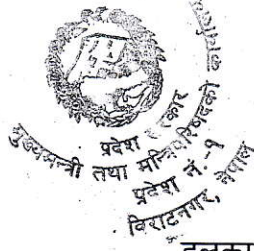 प्रदेश सरकार
मुख्यमन्त्री तथा मन्त्रिपरिषदको
प्रदेश नं.-१
विराटनगर, नेपाल